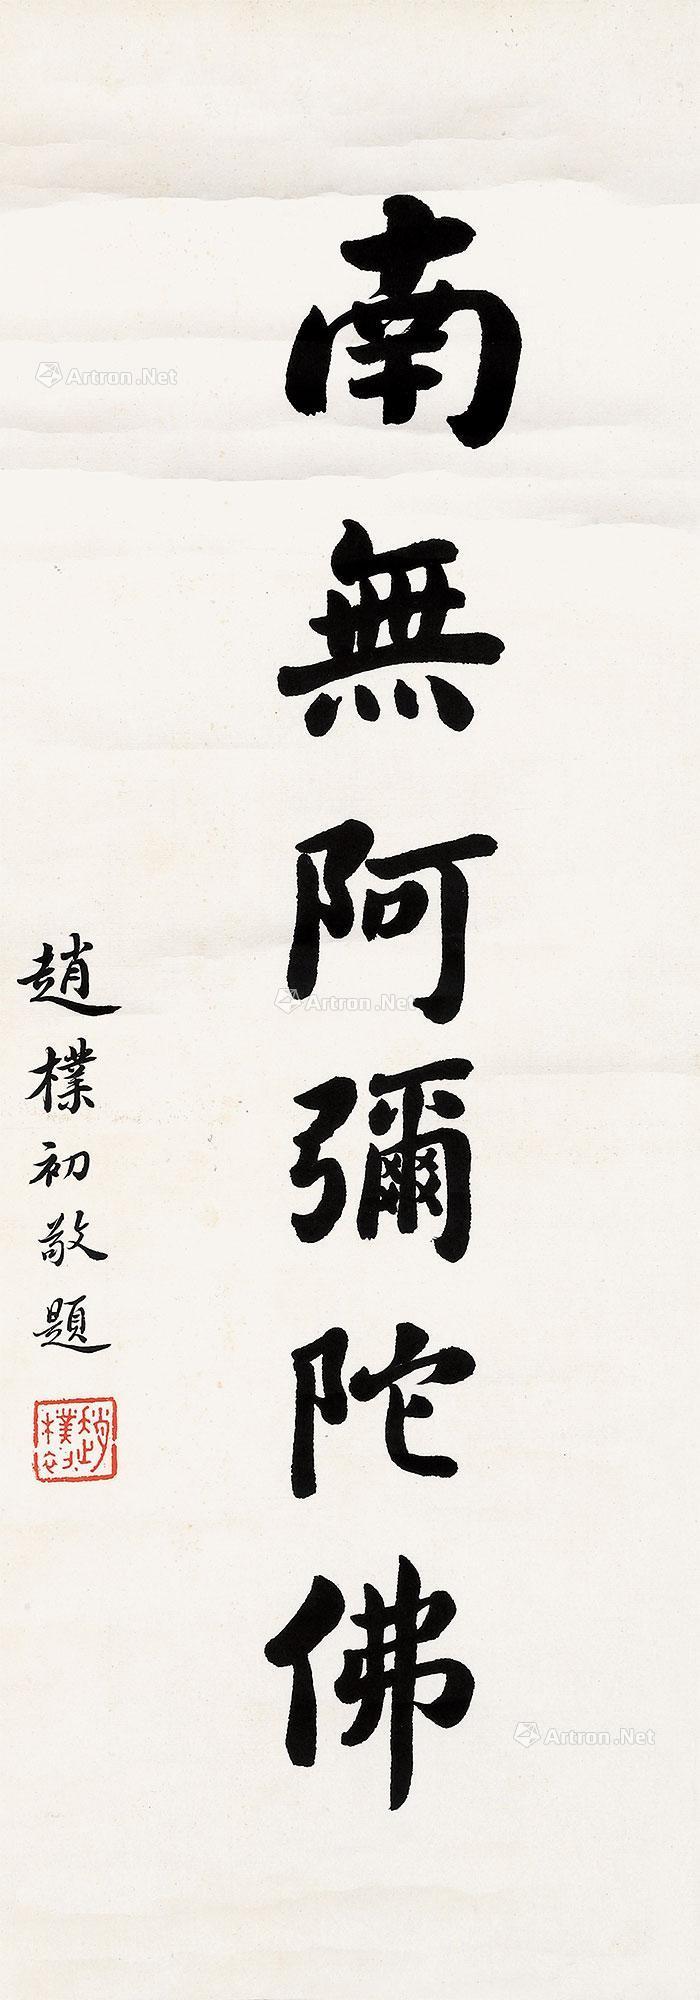 南無阿彌陀佛
趙樸初敬題
趙樸初
Artron.Net
Artron.Net
Artron.Net